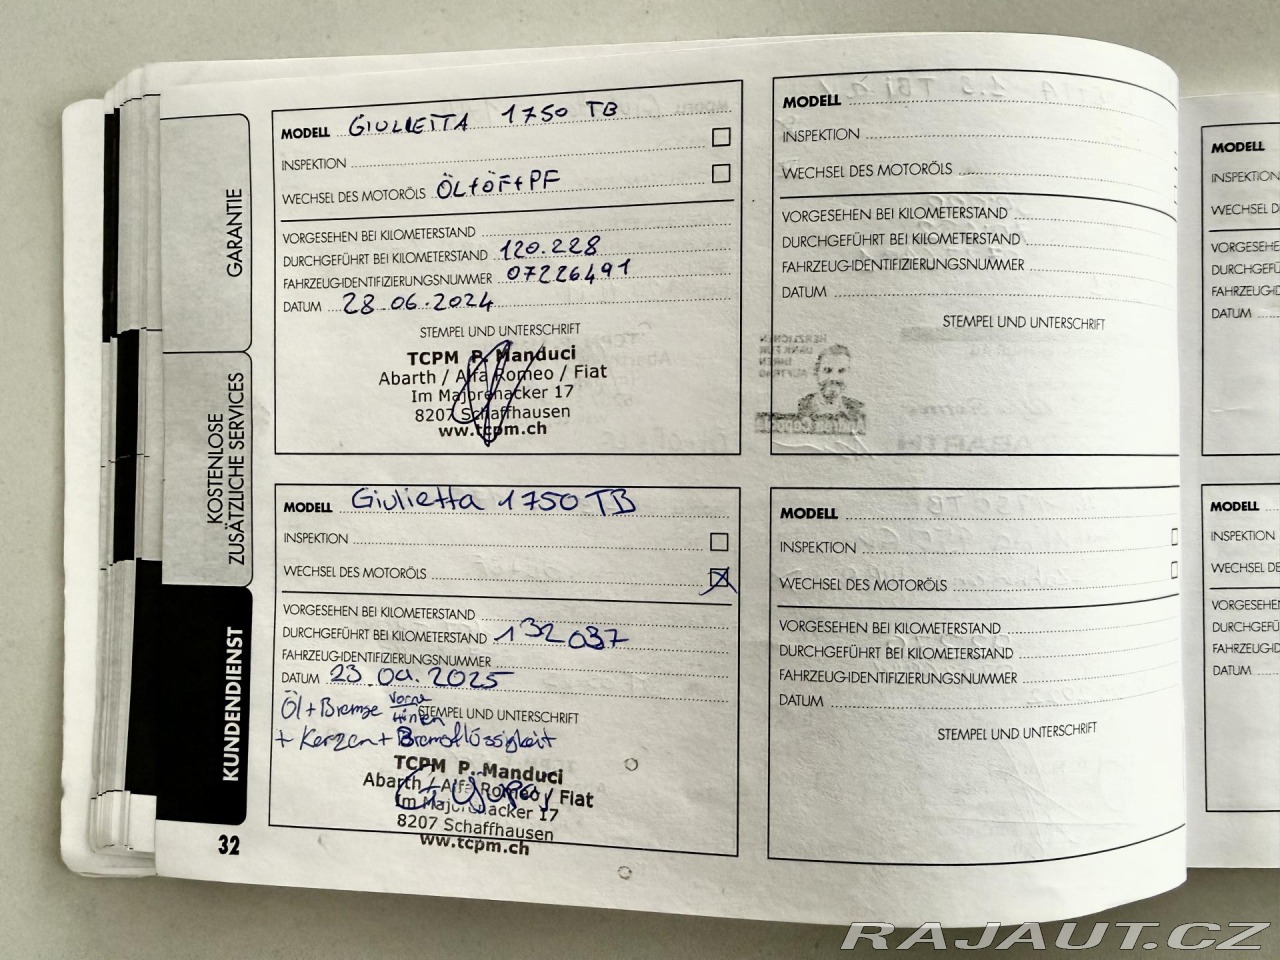 GARANTIE
KOSTENLOSE
ZUSÄTZLICHE SERVICES
KUNDENDIENST
32
MODELL GIULIETTA 1750 TB
INSPEKTION
WECHSEL DES MOTORÖLS ÖL+ÖF+PF
VORGESEHEN BEI KILOMETERSTAND
DURCHGEFÜHRT BEI KILOMETERSTAND 120.228
FAHRZEUG-IDENTIFIZIERUNGSNUMMER 07226491
DATUM 28.06.2024
STEMPEL UND UNTERSCHRIFT
TCPM P. Manduci
Abarth / Alfa Romeo / Fiat
Im Majorenacker 17
8207 Schaffhausen
ww.tcpm.ch
MODELL Giulietta 1750 TB
INSPEKTION
WECHSEL DES MOTORÖLS
VORGESEHEN BEI KILOMETERSTAND
DURCHGEFÜHRT BEI KILOMETERSTAND 132037
FAHRZEUG-IDENTIFIZIERUNGSNUMMER
DATUM 23.09.2025
Öl+Bremse Vorne
Hinten STEMPEL UND UNTERSCHRIFT
+ Kerzen + Bremsflüssigkeit
TCPM P. Manduci
Abarth / Alfa Romeo / Fiat
Im Majorenacker 17
8207 Schaffhausen
www.tcpm.ch
MODELL
INSPEKTION
WECHSEL DES MOTORÖLS
VORGESEHEN BEI KILOMETERSTAND
DURCHGEFÜHRT BEI KILOMETERSTAND
FAHRZEUG-IDENTIFIZIERUNGSNUMMER
DATUM
STEMPEL UND UNTERSCHRIFT
MODELL
INSPEKTION
WECHSEL DES MOTORÖLS
VORGESEHEN BEI KILOMETERSTAND
DURCHGEFÜHRT BEI KILOMETERSTAND
FAHRZEUG-IDENTIFIZIERUNGSNUMMER
DATUM
STEMPEL UND UNTERSCHRIFT
MODELL
INSPEKTION
WECHSEL D
VORGESEHE
DURCHGEFÜ
FAHRZEUG-ID
DATUM
MODELL
INSPEKTION
WECHSEL DE
VORGESEHEN
DURCHGEFÜ
FAHRZEUG-ID
DATUM
RAJAUT.CZ